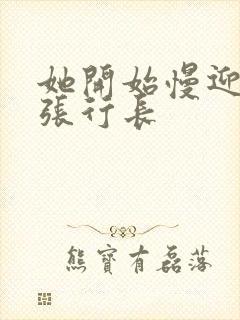 她開始慢迎
張行長
熊寶有磊落